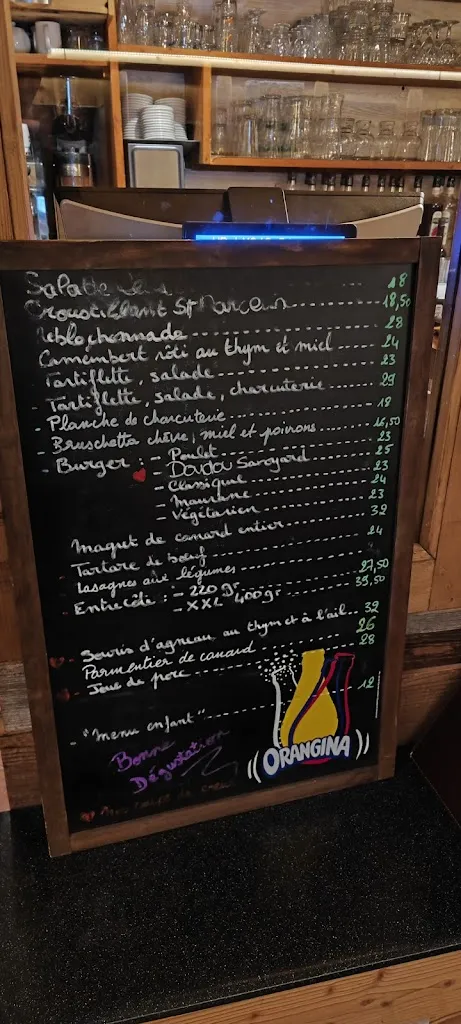 Salade 18
Croustillant St Marcelin 18,50
Reblochonnade 28
Camembert rôti au thym et miel 24
- Tartiflette, salade 23
- Tartiflette, salade, charcuterie 29
- Planche de charcuterie 18
- Bruschetta chèvre, miel et poivrons 16,50
- Burger : - Poulet 23
- Doudou Savoyard 25
- Classique 23
- Maurane 24
- Végétarien 23
Magret de canard entier 32
- Tartare de bœuf 24
- Lasagnes aux légumes
- Entrecôte : - 220 gr 27,50
- XXL 400 gr 39,50
- Souris d'agneau au thym et à l'ail 32
Parmentier de canard 26
- Joue de porc 28
- "Menu enfant" 12
Bonne
Dégustation
ORANGINA